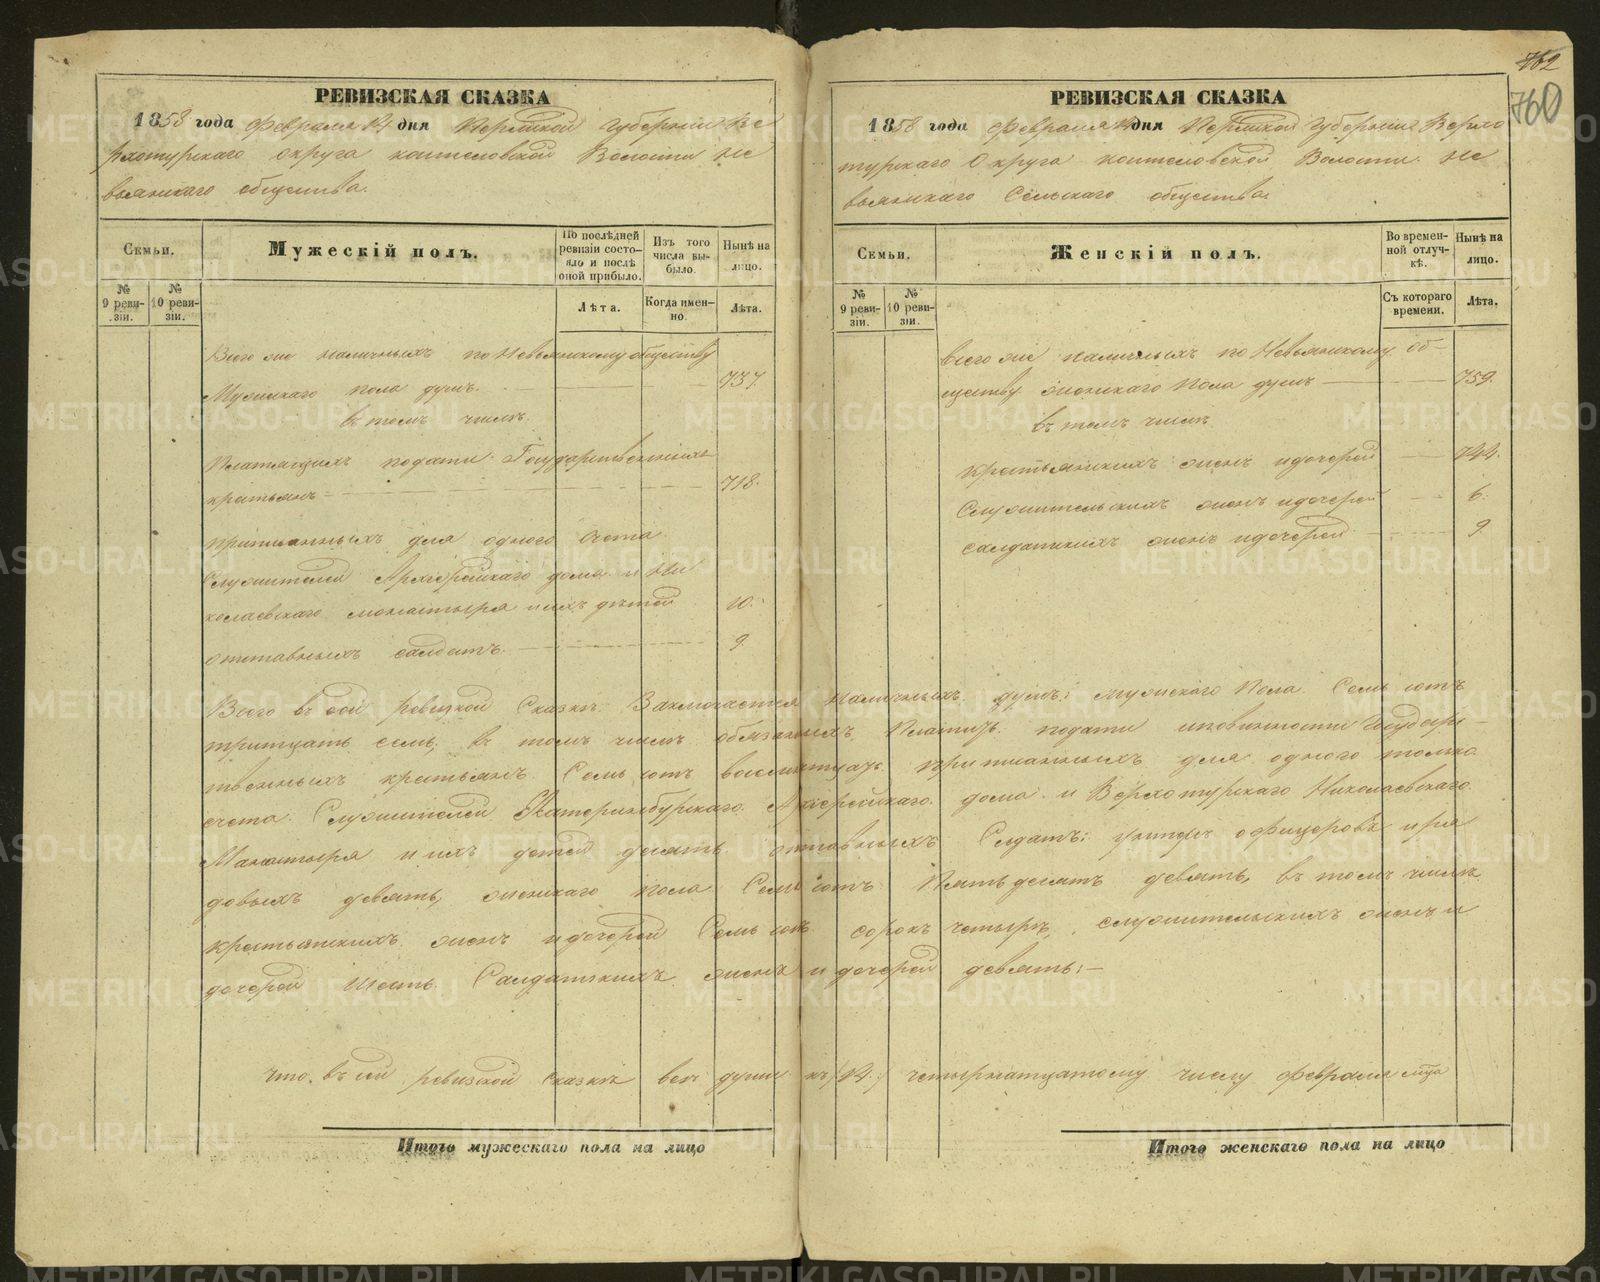 РЕВИЗСКАЯ СКАЗКА
1858 года Февраля 14 дня Пермской губернии Ве
рхотурскаго округа коптеловской Волости Не
вьянскаго общества.
Семьи.
Мужескій полъ.
По послѣдней ревизіи состояло и послѣ оной прибыло.
Изъ того числа выбыло.
Нынѣ на лицо.
№ 9 ревизіи.
№ 10 ревизіи.
Лѣта.
Когда именно.
Лѣта.
Всего же наличныхъ по Невьянскому обществу
Мужскаго пола душъ 737.
въ томъ числѣ.
Платящихъ подати Государственныхъ
крестьянъ 718.
приписанныхъ для одного счета
Служителей Архіерейскаго дома и Ни
колаевскаго монастыря и ихъ дѣтей 10.
отставныхъ солдатъ 9.
762
760
РЕВИЗСКАЯ СКАЗКА
1858 года Февраля 14 дня Пермской губерніи Верхо
турскаго Округа коптеловской Волости Не
вьянскаго Сельскаго общества.
Семьи.
Женскій полъ.
Во временной отлучкѣ.
Нынѣ на лицо.
№ 9 ревизіи.
№ 10 ревизіи.
Съ котораго времени.
Лѣта.
всего же наличныхъ по Невьянскому об-
ществу женскаго пола душъ 759.
въ томъ числѣ
крестьянскихъ женъ и дочерей 744.
Служительскихъ женъ и дочерей 6.
салдатскихъ женъ и дочерей 9.
Всего въ сей ревизской Сказкѣ Заключается Наличныхъ душъ: мужскаго Пола Семь сотъ
тритцать семь, въ томъ числѣ обязанныхъ Платить подати и повинности Государ-
твенныхъ крестьянъ Семь сотъ восемнатцать приписанныхъ для одного только
счета Служителей Екатеринбурскаго Архіерейскаго дома и Верхотурскаго Николаевскаго
Манастыря и ихъ детей десять отставныхъ Солдатъ: унтеръ офицеровъ и ря
довыхъ девять, женскаго пола Семь сотъ Пятьдесятъ девять, въ томъ числѣ
крестьянскихъ женъ и дочерей Семь сотъ сорокъ четыре, служительскихъ женъ и
дочерей шесть Салдатскихъ женъ и дочерей девять:—
Что въ сей ревизской сказкѣ всѣ души къ 14 четырнатцатому числу Февраля мца
Итого мужескаго пола на лицо
Итого женскаго пола на лицо
METRIKI.GASO-URAL.RU